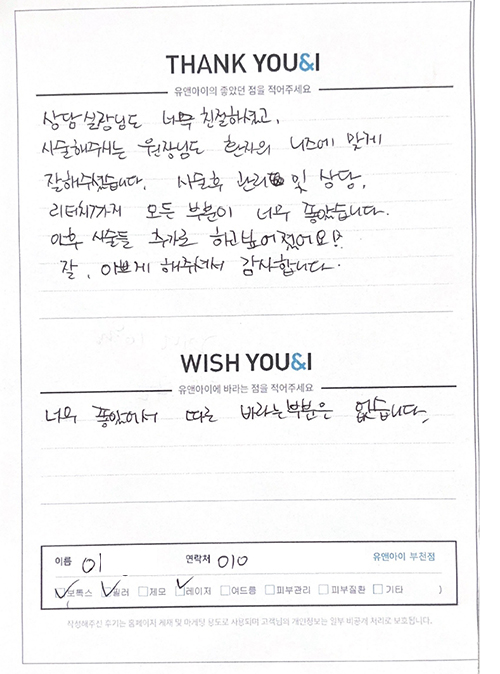 THANK YOU&I
유앤아이의 좋았던 점을 적어주세요
상담실장님도 너무 친절하셨고,
시술해주시는 원장님도 환자의 니즈에 맞게
잘해주셨습니다. 시술후 관리 및 상담,
리터치까지 모든 부분이 너무 좋았습니다.
이후 시술들 추가로 하고싶어졌어요!?
잘, 이쁘게 해주셔서 감사합니다.
WISH YOU&I
유앤아이에 바라는 점을 적어주세요
너무 좋았어서 따로 바라는부분은 없습니다.
이름 이 연락처 010 유앤아이 부천점
보톡스 필러 제모 레이저 여드름 피부관리 피부질환 기타 )
(
작성해주신 후기는 홈페이지 게재 및 마케팅 용도로 사용되며 고객님의 개인정보는 일부 비공개 처리로 보호됩니다.